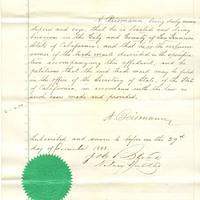 A. Reismann being duly sworn
deposes and says that he is located and doing
business in the City and County of San Francisco
State of California; and that he is the exclusive
owner of the trade mark described in the specifica-
tion accompanying this affidavit, and he
petitions that the said trade mark may be filed
in the office of the Secretary of State of the State
of California, in accordance with the law in
such case made and provided.
A. Reismann
Subscribed and sworn to before me this 29th
day of December 1888.
Notary Public